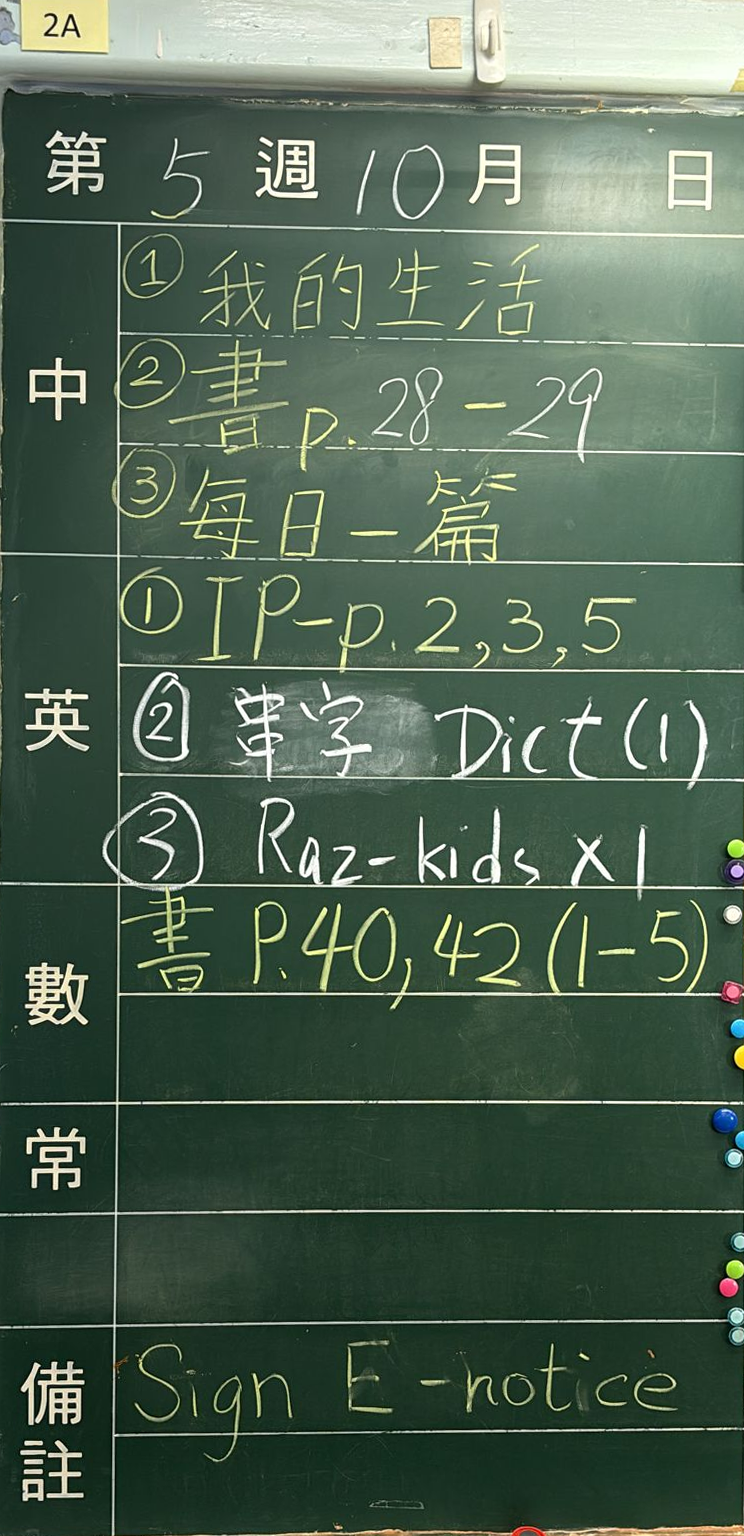 2A
第 5 週 10 月 日
中
① 我的生活
② 書 p. 28-29
③ 每日一篇
英
① IP-p. 2,3,5
② 串字 Dict (1)
③ Raz-kids x1
數
書 P.40,42 (1-5)
常
備註
Sign E-notice